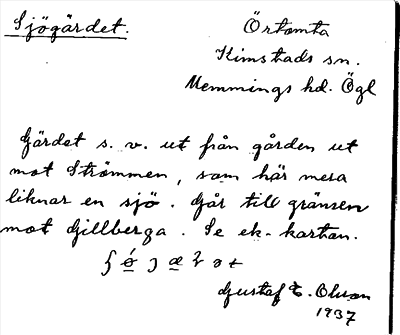 Sjögärdet.
Örtomta
Kimstads sn.
Memmings hd. Ögl
Gärdet s. v. ut från gården ut
mot Strömmen, som här mera
liknar en sjö. Går till gränsen
mot Gillberga. Se ek-kartan.
Gustaf E. Olsson
1937